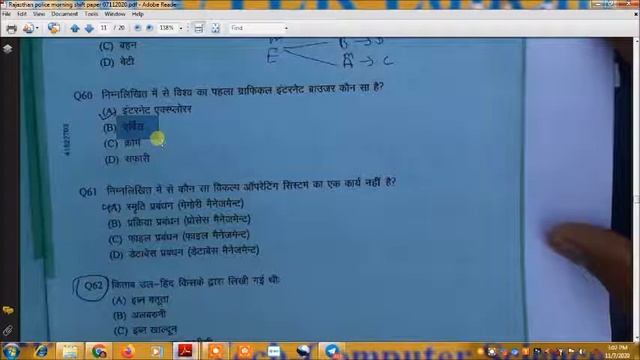 Rajasthan police morning shift paper 07112020.pdf - Adobe Reader
Edit View Document Tools Window Help
11 / 20 138% Find
(C) बहन
(D) बेटी
B → D
E A → C
Q60 निम्नलिखित में से विश्व का पहला ग्राफिकल इंटरनेट ब्राउजर कौन सा है?
(A) इंटरनेट एक्सप्लोरर
(B)
(C) क्रोम
(D) सफारी
41822703
Q61 निम्नलिखित में से कौन सा विकल्प ऑपरेटिंग सिस्टम का एक कार्य नहीं है?
(A) स्मृति प्रबंधन (मेमोरी मैनेजमेन्ट)
(B) प्रक्रिया प्रबंधन (प्रोसेस मैनेजमेन्ट)
(C) फाइल प्रबंधन (फाइल मैनेजमेन्ट)
(D) डेटाबेस प्रबंधन (डेटाबेस मैनेजमेन्ट)
Q62 किताब उल-हिंद किसके द्वारा लिखी गई थी:
(A) इब्न बतूता
(B) अलबरुनी
(C) इब्न खाल्दून
Computer
1:02 PM
11/7/2020